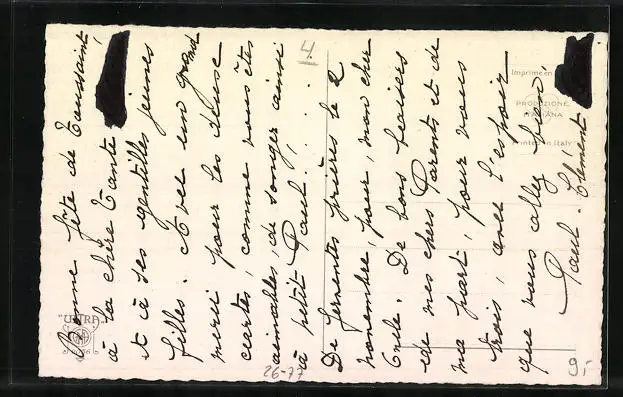 Bonne fête de Toussaint
à la chère tante
et à ses gentilles jeunes
filles. Avec un grand
merci pour les deux
cartes, comme vous êtes
aimables, de songer ainsi
à petit Paul!.....
De ferventes prières le 2
novembre, pour, mon cher
Oncle. De bons baisers
de mes chers Parents et de
ma part, pour vous
trois, avec l'espoir
que vous allez bien!
Paul-Clément
4
"ULTRA"
Imprimé en
PRODUZIONE
ITALIANA
Printed in Italy
26-77
9,-